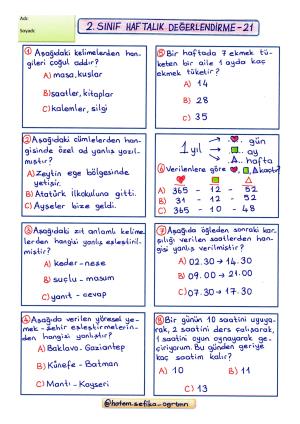 Adı:
Soyadı:
2. SINIF HAFTALIK DEĞERLENDİRME-21
1 Aşağıdaki kelimelerden han-
gileri çoğul addır?
A) masa, kuşlar
B) saatler, kitaplar
C) kalemler, silgi
2 Aşağıdaki cümlelerden han-
gisinde özel ad yanlış yazıl-
mıştır?
A) Zeytin ege bölgesinde
yetişir.
B) Atatürk ilkokuluna gitti.
C) Ayseler bize geldi.
3 Aşağıdaki zıt anlamlı kelime-
lerden hangisi yanlış eşleştiril-
miştir?
A) keder-neşe
B) suçlu - masum
C) yanıt - cevap
4 Aşağıda verilen yöresel ye-
mek-şehir eşleştirmelerin-
den hangisi yanlıştır?
A) Baklava-Gaziantep
B) Künefe - Batman
C) Mantı - Kayseri
5 Bir haftada 7 ekmek tü-
keten bir aile 1 ayda kaç
ekmek tüketir?
A) 14
B) 28
C) 35
1 yıl
gün
ay
hafta
6 Verilenlere göre ♥, □, △ kaçtır?
A) 365 - 12 - 52
B) 31 - 12 - 52
C) 365 - 10 - 48
7 Aşağıda öğleden sonraki kar-
şılığı verilen saatlerden han-
gisi yanlış verilmiştir?
A) 02.30 → 14.30
B) 09.00 → 21.00
C) 07.30 → 17.30
8 Bir günün 10 saatini uyuya-
rak, 2 saatini ders çalışarak,
1 saatini oyun oynayarak ge-
çiriyorum. Bu günden geriye
kaç saatim kalır?
A) 10
B) 11
C) 13
@hatem_sefika_ogrtmn